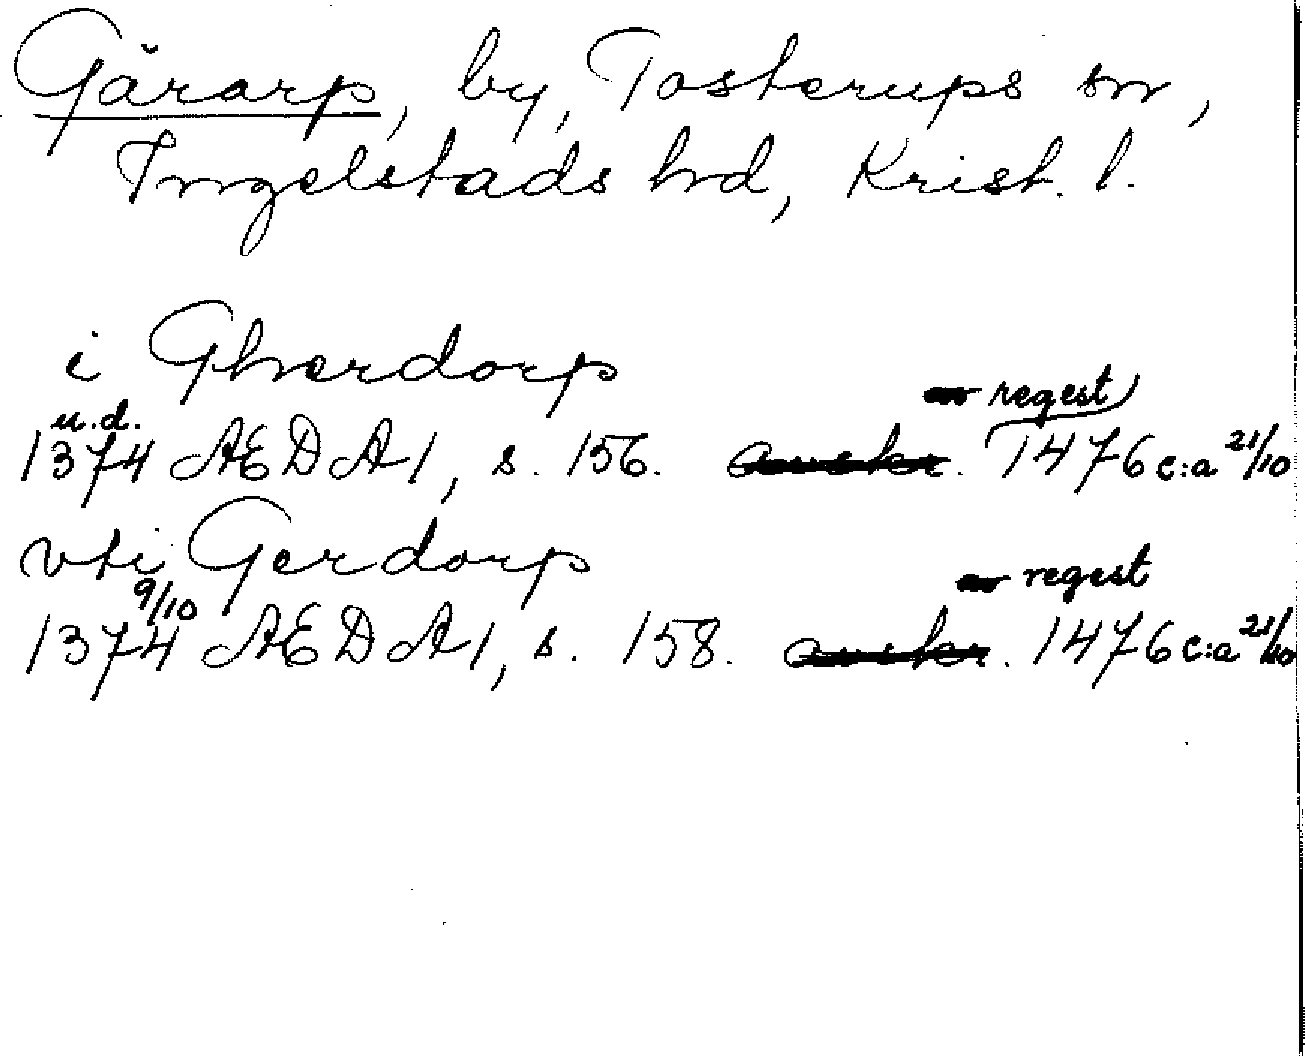 Gärarp, by, Tosterups sn,
Ingelstads hd, Krist. l.
i Gherdorp
regest
u.d.
1374 ÆDA 1, s. 156. avskr. 1476 c:a 21/10
vti Gerdorp
regest
9/10
1374 ÆDA 1, s. 158. avskr. 1476 c:a 21/10